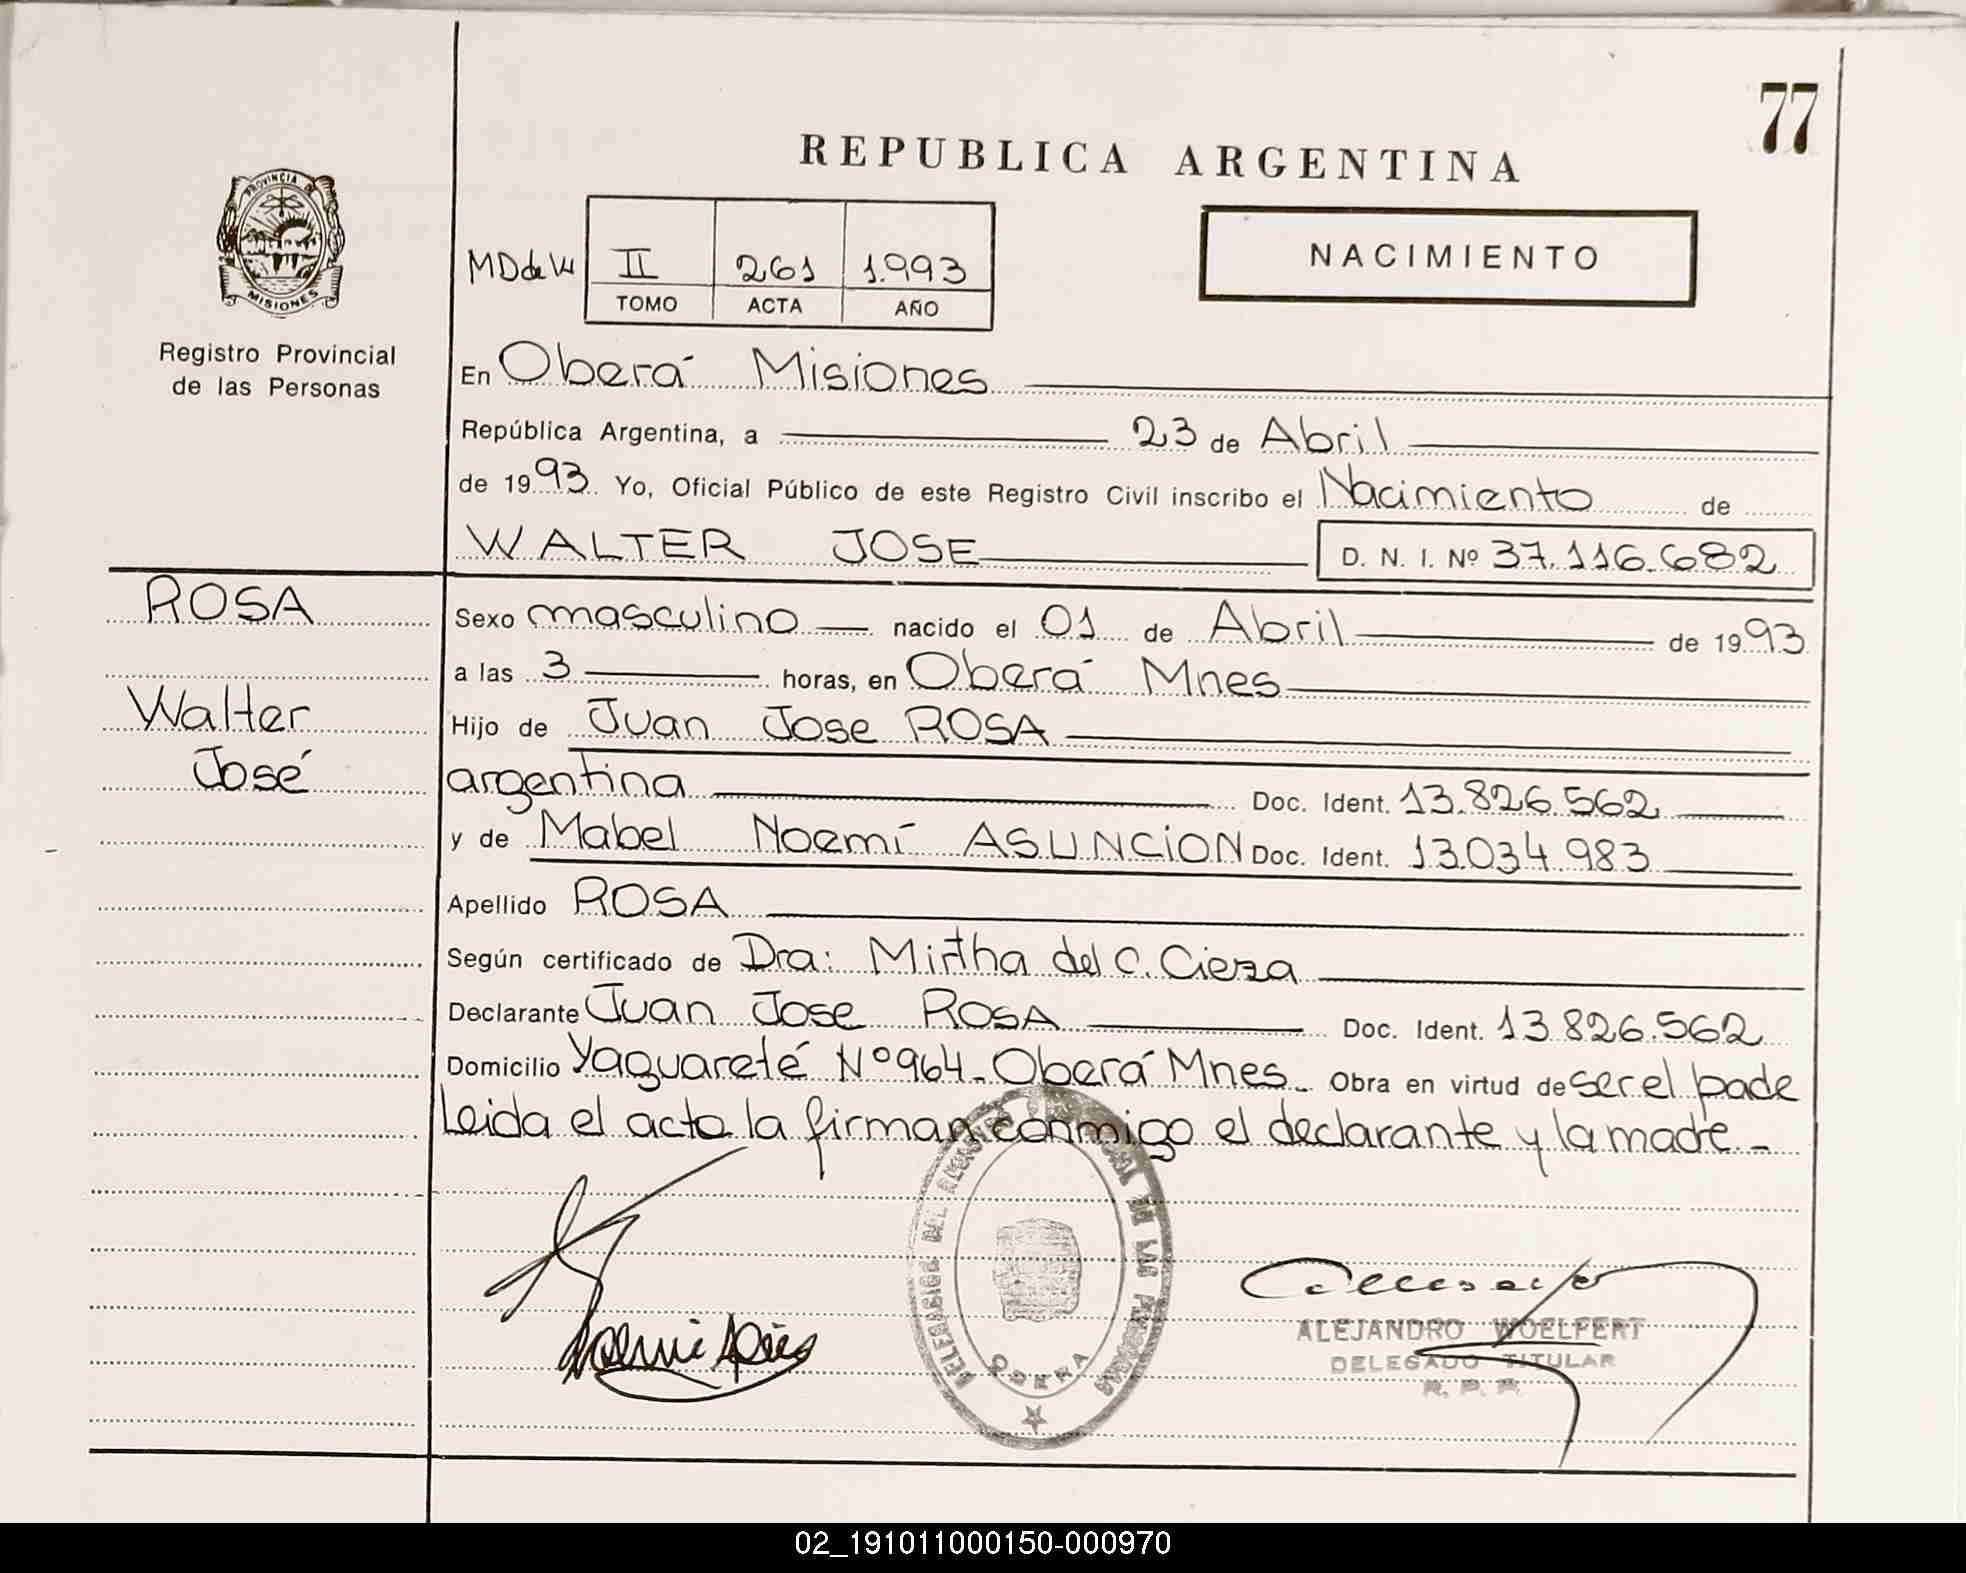 77
REPUBLICA ARGENTINA
PROVINCIA DE
MISIONES
Registro Provincial
de las Personas
MD de W
II 261 1.993
TOMO ACTA AÑO
NACIMIENTO
En Oberá Misiones
República Argentina, a 23 de Abril
de 1993. Yo, Oficial Público de este Registro Civil inscribo el Nacimiento de
WALTER JOSE D. N. I. Nº 37.116.682
ROSA
Walter
José
Sexo masculino nacido el 01 de Abril de 1993
a las 3 horas, en Oberá Mnes
Hijo de Juan Jose ROSA
argentina Doc. Ident. 13.826.562
y de Mabel Noemí ASUNCION Doc. Ident. 13.034.983
Apellido ROSA
Según certificado de Dra: Mirtha del C. Cieza
Declarante Juan Jose ROSA Doc. Ident. 13.826.562
Domicilio Yaguareté Nº 964 - Oberá Mnes - Obra en virtud de ser el pade
Leida el acta la firman conmigo el declarante y la madre.-
DELEGACION DEL REGISTRO PROVINCIAL DE LAS PERSONAS
OBERA
ALEJANDRO WOELFERT
DELEGADO TITULAR
R. P. P.
02_191011000150-000970